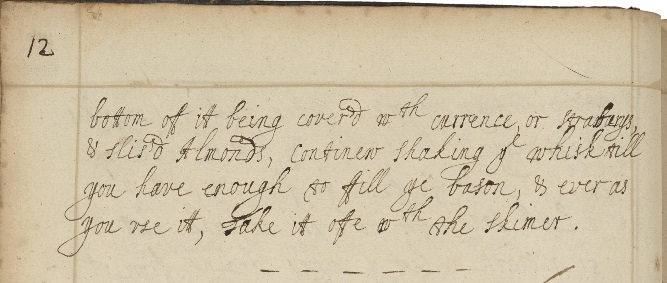 12
bottom off itt being cover'd wth currence, or straburys,
& slis'd Almonds, continew shaking ye whisk till
you have enough to ffill ye bason, & ever as
you vse itt, take it offe wth the skimer.